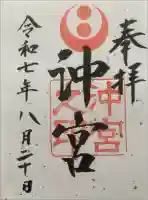 奉拝
沖宮
沖宮
令和七年八月二十日